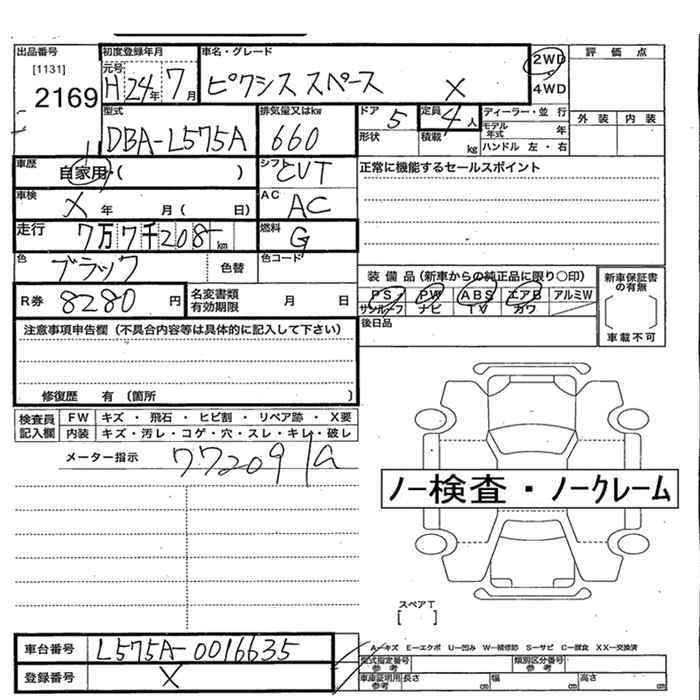 出品番号 初度登録年月 車名・グレード 2WD 評価点
[1131] 元号 4WD
2169 H 24年 7月 ピクシス スペース X 外装 内装
型式 排気量又はkw ドア 定員 ディーラー・並行
DBA-L575A 660 5 4人 モデル年式 年
形状 積載 kg ハンドル 左・右
車歴 自家用・( ) シフト CVT 正常に機能するセールスポイント
車検 X 年 月 ( 日) AC AC
走行 7万7千208km 燃料 G
色 ブラック 色替 色コード 装備品(新車からの純正品に限り○印) 新車保証書の有無
R券 8280 円 名変書類有効期限 月 日 PS PW ABS エアB アルミW
サンルーフ ナビ TV カワ
車載不可
注意事項申告欄(不具合内容等は具体的に記入して下さい) 後日品
修復歴 有(箇所 )
検査員記入欄 FW キズ・飛石・ヒビ割・リペア跡・X要
内装 キズ・汚レ・コゲ・穴・スレ・キレ・破レ
メーター指示 77209
ノー検査・ノークレーム
スペアT
[ ]
車台番号 L575A-0016635 A-キズ E-エクボ U-凹み W-補修跡 S-サビ C-腐食 XX-交換済
登録番号 X 型式指定番号参考 類別区分番号参考
車庫証明用参考 長さ cm 幅 cm 高さ cm